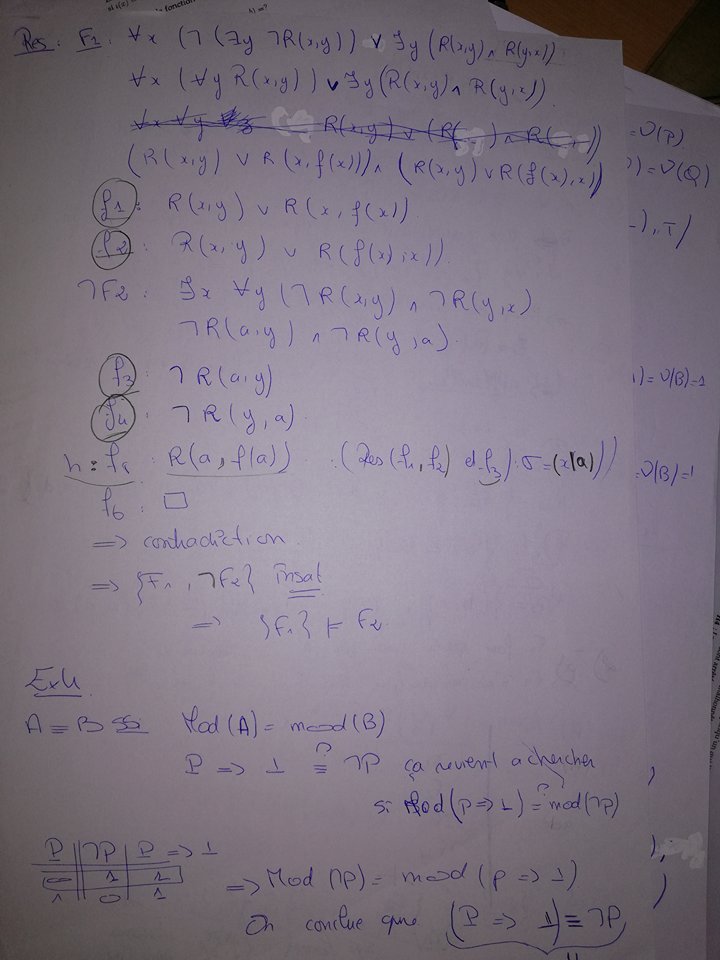 Res : F1 : ∀x (¬(∃y ¬R(x,y)) ∨ ∃y (R(x,y) ∧ R(y,x))
∀x (∀y R(x,y)) ∨ ∃y (R(x,y) ∧ R(y,x))
(R(x,y) ∨ R(x, f(x))) ∧ (R(x,y) ∨ R(f(x), x))
f1 : R(x,y) ∨ R(x, f(x))
f2 : R(x,y) ∨ R(f(x), x))
¬F2 : ∃x ∀y (¬R(x,y) ∧ ¬R(y,x)
¬R(a,y) ∧ ¬R(y,a)
f3 : ¬R(a,y)
f4 : ¬R(y,a)
R(a, f(a)) (Res (f1, f2) et f3) : σ = (x|a)))
f6 : □
=> contradiction
=> {F1, ¬F2} insat
=> {F1} ⊨ F2
A ≡ B ssi Mod(A) = mod(B)
P => ⊥ ≡? ¬P ça revient a chercher
si Mod(P => ⊥) =? mod(¬P)
P ¬P P => ⊥
0 1 1
1 0 1
=> Mod(¬P) = mod(p => ⊥)
On conclue que (P => ⊥) ≡ ¬P
= ν(P)
) = ν(Q)
) = ν(B) = 1
= ν(B) = 1